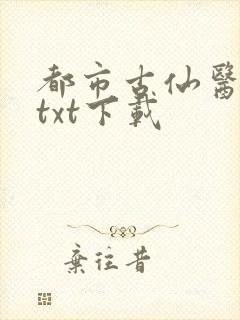 都市古仙醫
txt下載
棄往昔